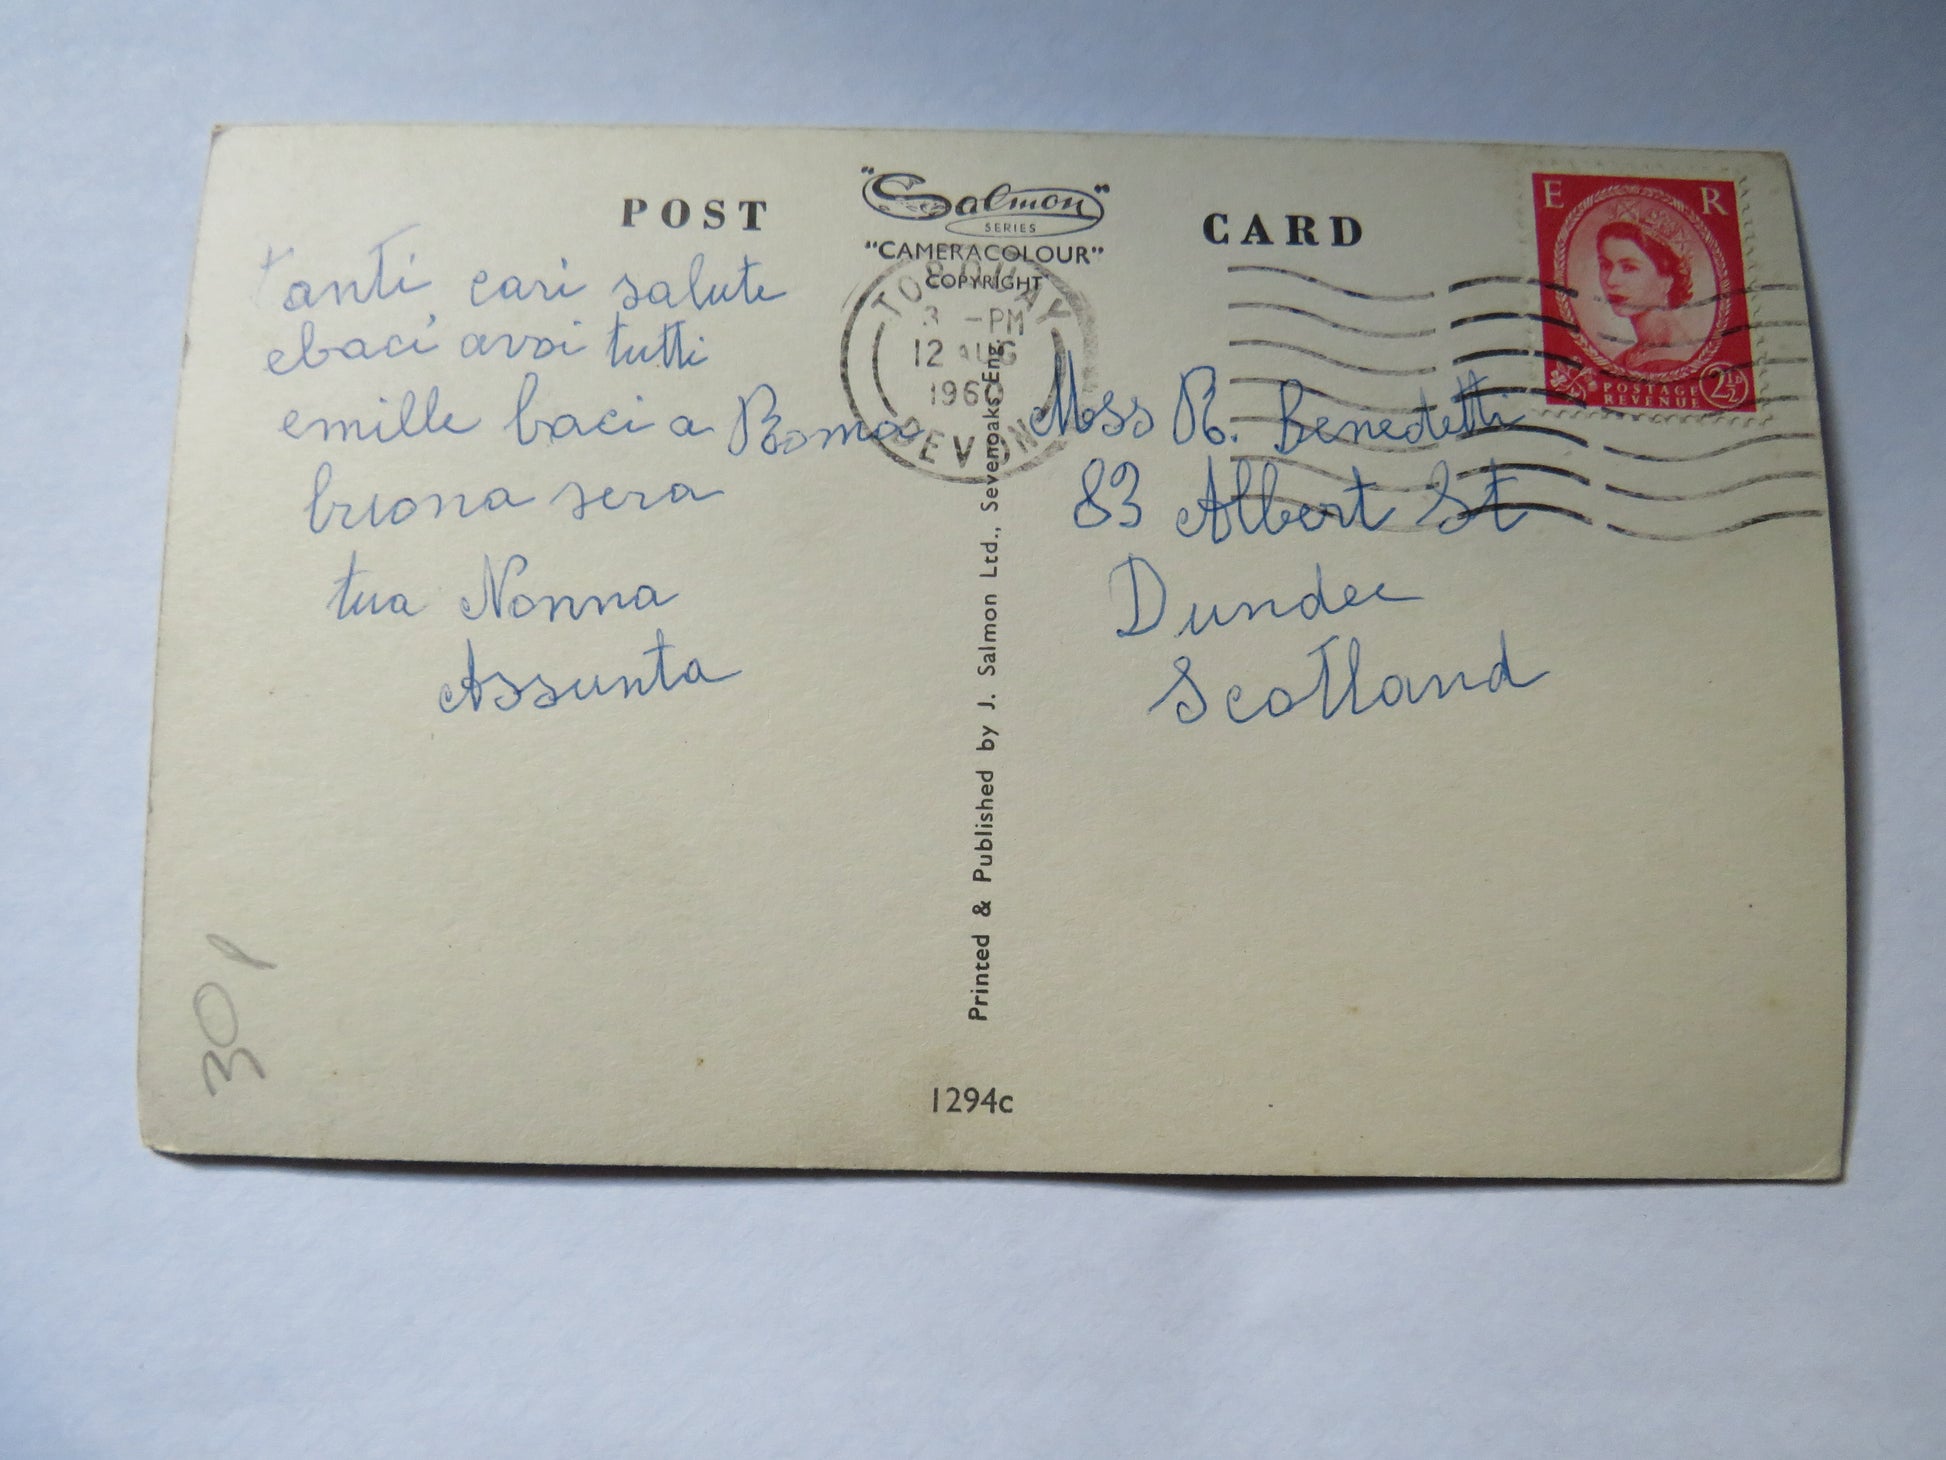 POST CARD
"Salmon"
SERIES
"CAMERACOLOUR"
COPYRIGHT
E R
POSTAGE
REVENUE
2½D
TORQUAY
3 -PM
12 AUG
DEVON
Tanti cari salute
ebaci avoi tutti
emille baci a Roma
buona sera
tua Nonna
Assunta
Miss R. Benedetti
83 Albert St
Dundee
Scotland
Printed & Published by J. Salmon Ltd., Sevenoaks, Eng.
1294c
301